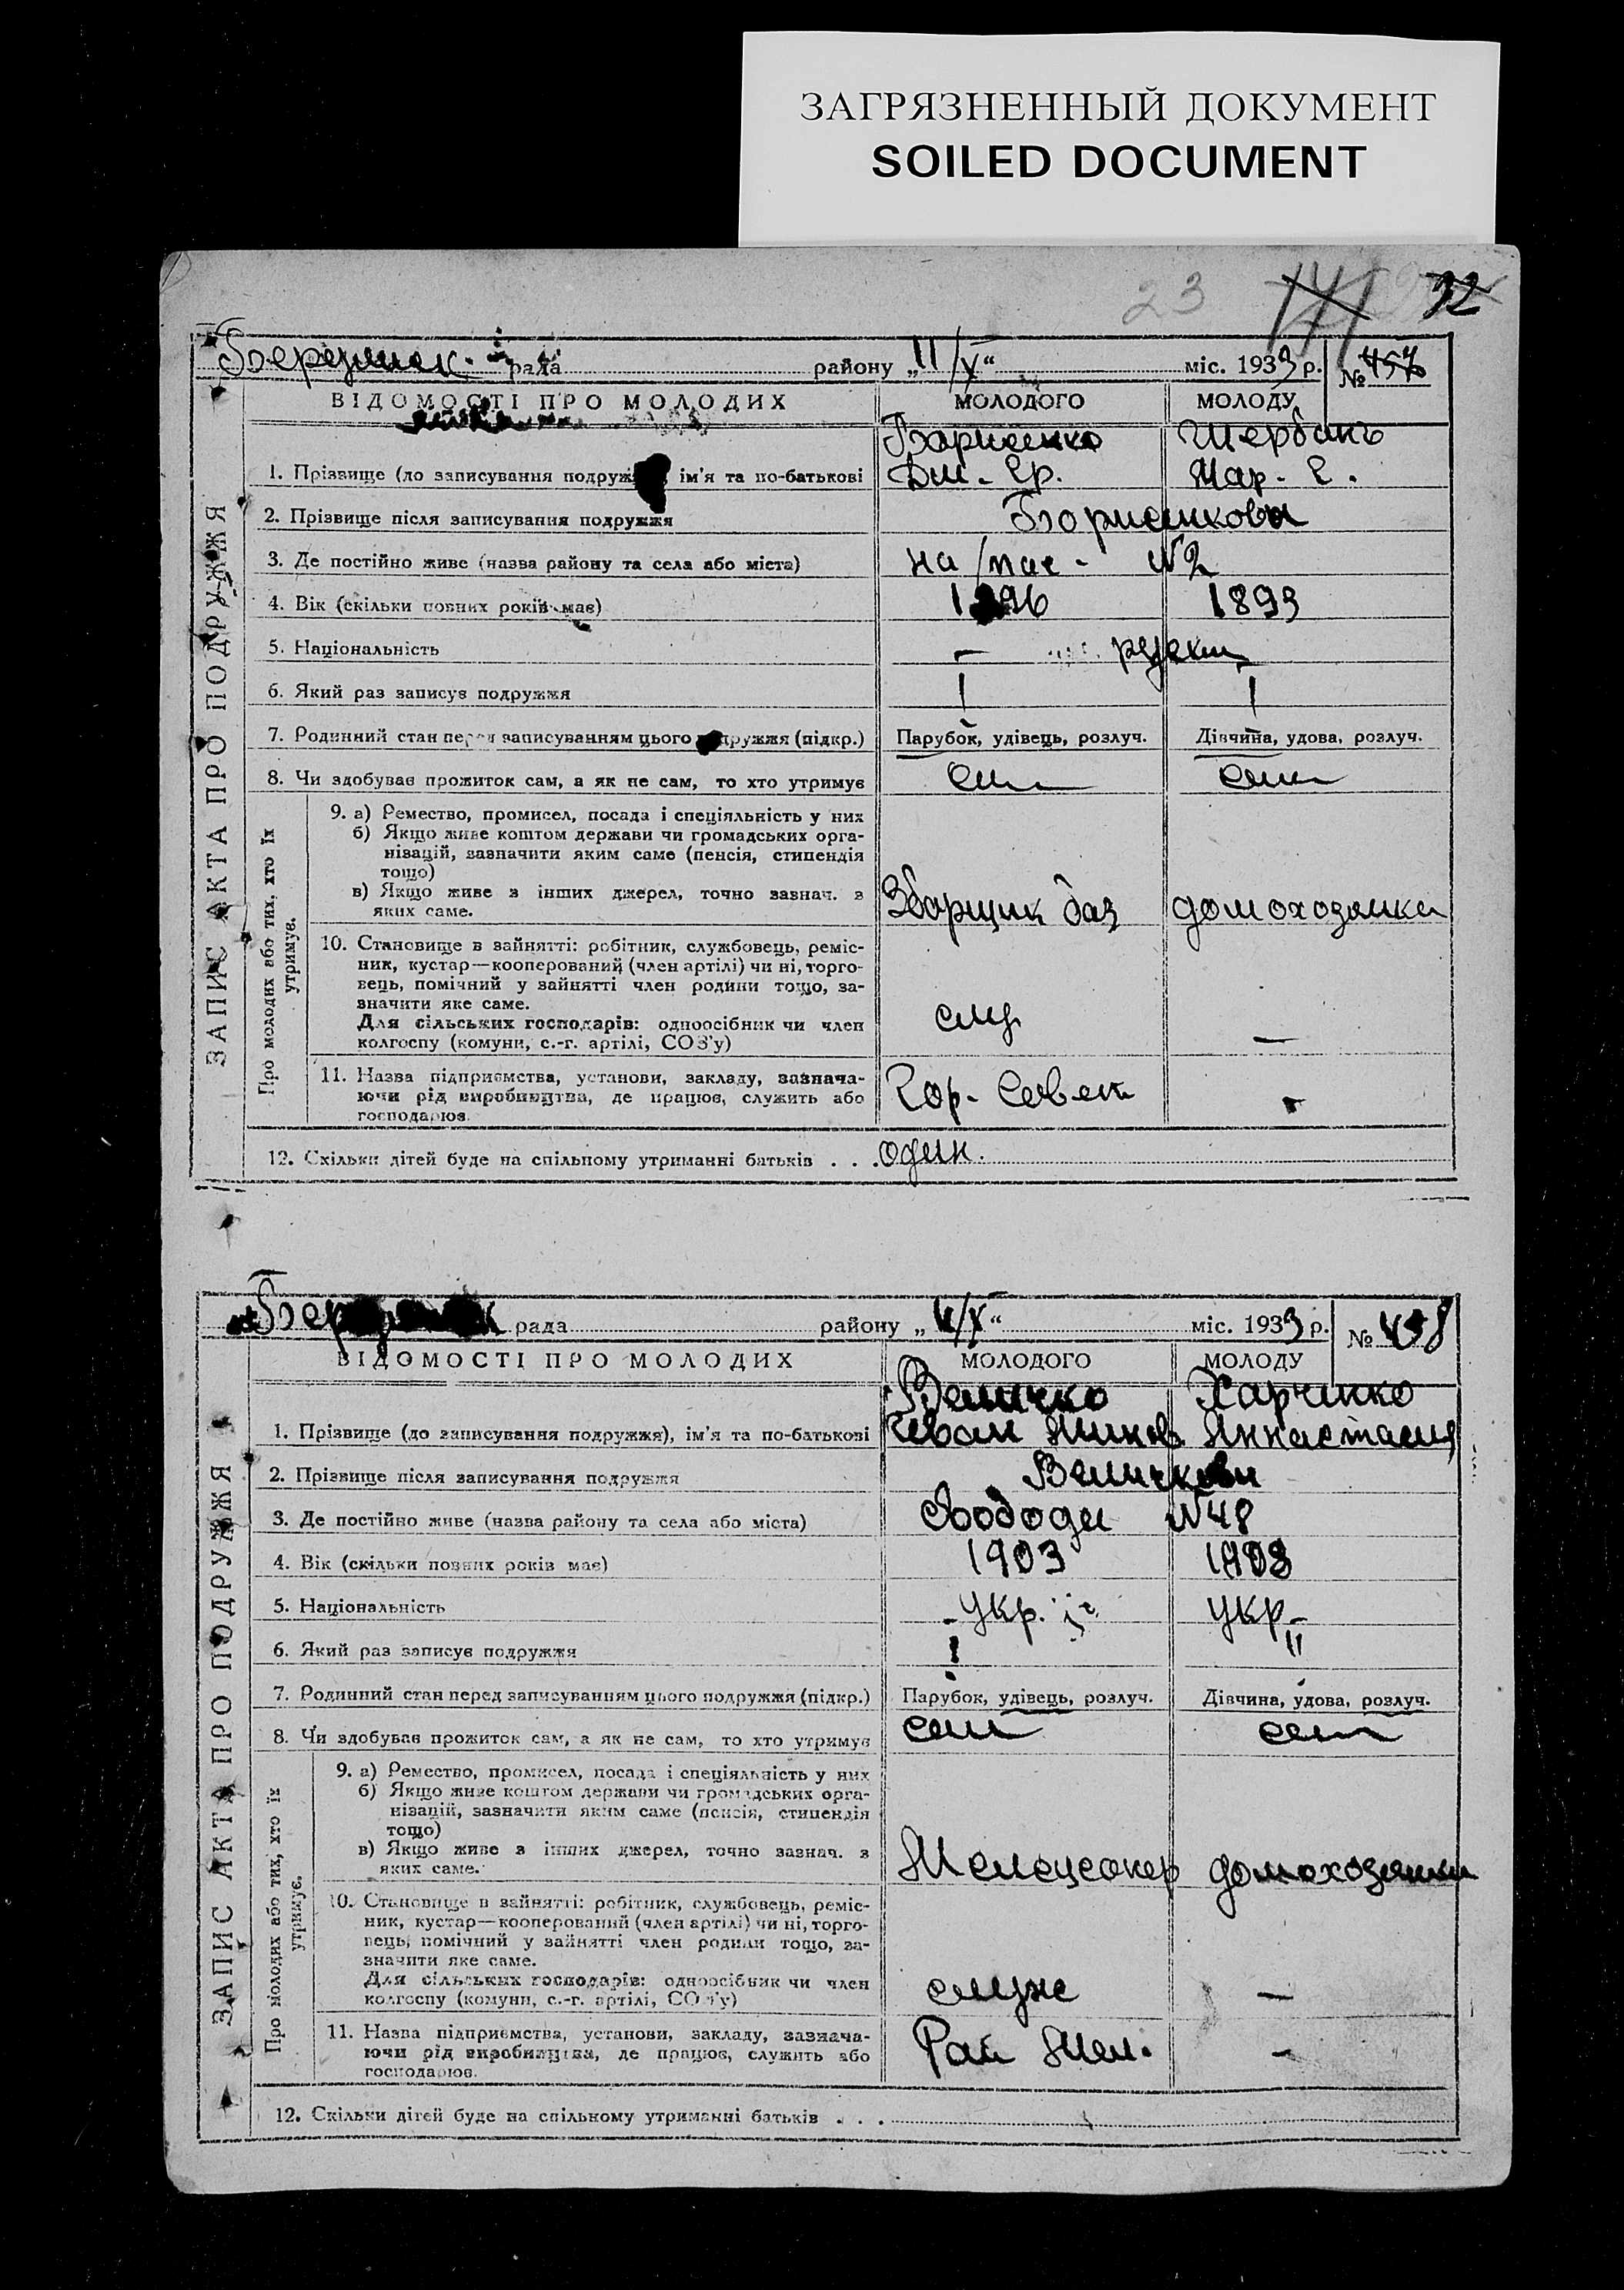 ЗАГРЯЗНЕННЫЙ ДОКУМЕНТ
SOILED DOCUMENT
23
32
рада району „11/X“ міс. 1933 р. № 457
ВІДОМОСТІ ПРО МОЛОДИХ МОЛОДОГО МОЛОДУ
Борисенко Щербань
1. Прізвище (до записування подружжя) ім'я та по-батькові Дм. Гр. Мар. Е.
2. Прізвище після записування подружжя Борисенкови
3. Де постійно живе (назва району та села або міста) №2
4. Вік (скільки повних років має) 1896 1893
5. Національність
6. Який раз записує подружжя I I
7. Родинний стан перед записуванням цього подружжя (підкр.) Парубок, удівець, розлуч. Дівчина, удова, розлуч.
8. Чи здобуває прожиток сам, а як не сам, то хто утримує сам сама
ЗАПИС АКТА ПРО ПОДРУЖЖЯ
Про молодих або тих, хто їх утримує.
9. а) Ремество, промисел, посада і спеціяльність у них
б) Якщо живе коштом держави чи громадських орга-
нізацій, зазначити яким саме (пенсія, стипендія
тощо)
в) Якщо живе з інших джерел, точно зазнач. з
яких саме. Зборщик баз домохозяйка
10. Становище в зайнятті: робітник, службовець, реміс-
ник, кустар—кооперований (член артілі) чи ні, торго-
вець, помічний у зайнятті член родини тощо, за-
значити яке саме.
Для сільських господарів: одноосібник чи член
колгоспу (комуни, с.-г. артілі, СОЗ'у) служ —
11. Назва підприємства, установи, закладу, зазнача-
ючи рід виробництва, де працює, служить або
господарює. Гор. Совет -
12. Скільки дітей буде на спільному утриманні батьків . . . один.
рада району „11/X“ міс. 1933 р. № 458
ВІДОМОСТІ ПРО МОЛОДИХ МОЛОДОГО МОЛОДУ
Величко Харченко
1. Прізвище (до записування подружжя), ім'я та по-батькові Иван Яков Аннастасия
2. Прізвище після записування подружжя Величкови
3. Де постійно живе (назва району та села або міста) Свободи №48
4. Вік (скільки повних років має) 1903 1908
5. Національність укр. укр
6. Який раз записує подружжя I II
7. Родинний стан перед записуванням цього подружжя (підкр.) Парубок, удівець, розлуч. Дівчина, удова, розлуч.
8. Чи здобуває прожиток сам, а як не сам, то хто утримує сам сам
ЗАПИС АКТА ПРО ПОДРУЖЖЯ
Про молодих або тих, хто їх утримує.
9. а) Ремество, промисел, посада і спеціяльність у них
б) Якщо живе коштом держави чи громадських орга-
нізацій, зазначити яким саме (пенсія, стипендія
тощо)
в) Якщо живе з інших джерел, точно зазнач. з
яких саме. домохозяйка
10. Становище в зайнятті: робітник, службовець, реміс-
ник, кустар—кооперований (член артілі) чи ні, торго-
вець, помічний у зайнятті член родини тощо, за-
значити яке саме.
Для сільських господарів: одноосібник чи член
колгоспу (комуни, с.-г. артілі, СОЗ'у) служ —
11. Назва підприємства, установи, закладу, зазнача-
ючи рід виробництва, де працює, служить або
господарює. Рай -
12. Скільки дітей буде на спільному утриманні батьків . . .